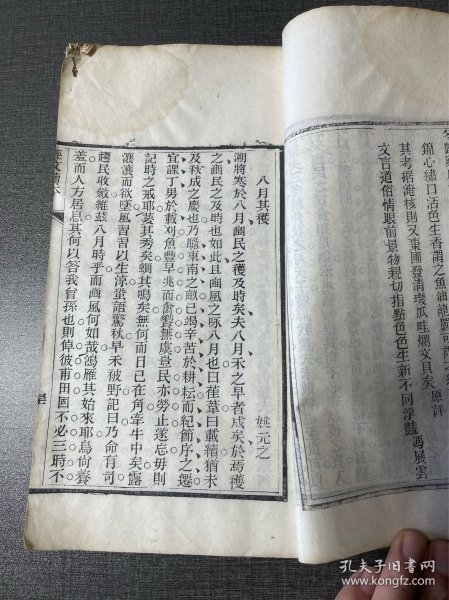 錦心繡口活色生香謂之魚油龍罽可
其考據淹核則又棗圃發清瓊瓜畦爛文貝矣 原評
文言道俗情眼前景物親切指點色色生新不同浮豔 馮展雲
八月其穫
姚元之
溯將寒於八月豳民之穫及時矣夫八月禾之早者成矣於焉穫
之豳民之及時也如此且豳風之咏八月也曰萑葦曰載績猶未
及秋成之慶也乃瞻東南之畝已竭辛苦於耕耘而紀節序之遷
宜課丁男於載刈魚豐早兆而禽饗無虞豈民亦勞止遂忘毋則
記時之戒耶葽其秀矣蜩其鳴矣無何而日已在角牽牛中矣露
瀼瀼而欲墜風習習以生涼蛩語驚秋早禾被野記曰乃命有司
趣民收斂維茲八月時乎而豳風何如哉鴻雁其始來耶鳥尚養
羞而人方居息其何以答我曾孫也則倬彼甫田固不必三時不
孔夫子旧书网
www.kongfz.com